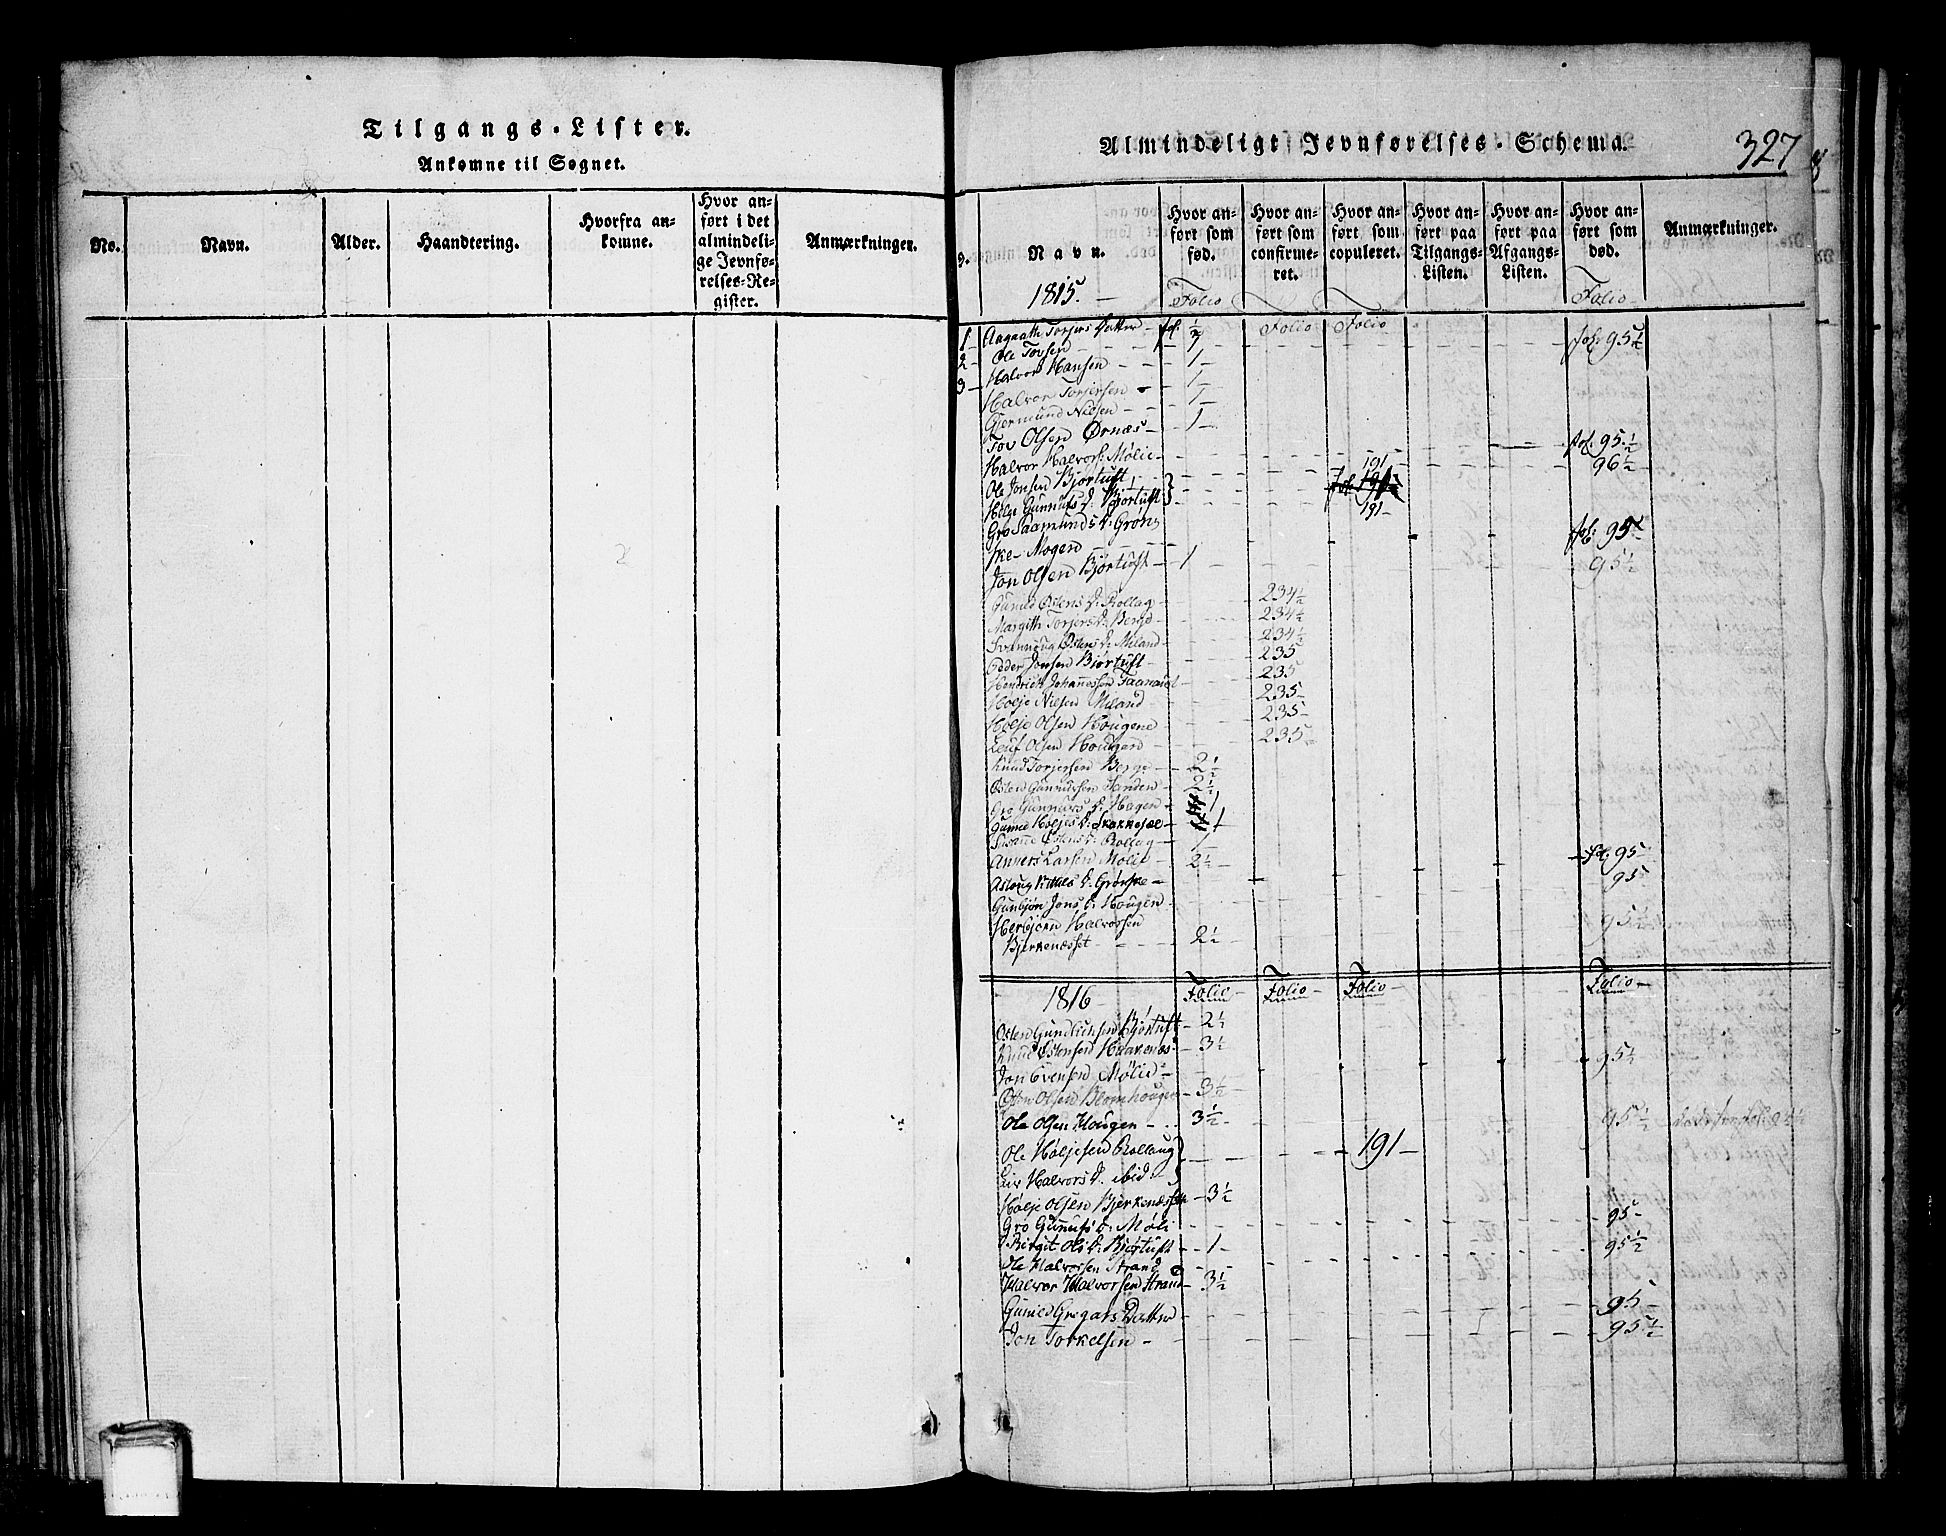 Tilgangs-Lister.
Ankomne til Sognet.
No.
Navn.
Alder.
Haandtering.
Hvorfra an-
komne.
Hvor an-
ført i det
almindeli-
ge Jevnfø-
relses-Re-
gister.
Anmærkninger.
Almindeligt Jevnførelses-Schema.
327
Navn.
Hvor an-
ført som
fød.
Hvor an-
ført som
confirme-
ret.
Hvor an-
ført som
copuleret.
Hvor an-
ført paa
Tilgangs-
Listen.
Hvor an-
ført paa
Afgangs-
Listen.
Hvor an-
ført som
død.
Anmærkninger.
1815. Folio Folio
1 Aagaath Torjers Datter fol. Folio Folio
2 Ole Tovsen 1 fol. 95½
3 Halvor Hansen 1
Halvor Torjersen 1
Gjermund Nilsen 1
Tov Olsen Ørnæs 1
Halvor Halvors: Mølie fol. 95½
Ole Jonsen Bjørtuft 191 96½
Helge Gunnufs D: Bjørtuft 191
Gro Saamunds D: Grøns
ke Mogen fol. 95
Jon Olsen Bjørtuft 1 95½
Guned Østens D: Rollag 234½
Margith Torjers D: Berge 234½
Svennoug Østens D: Miland 234½
Peder Jonsen Bjørtuft 235
Hendrich Johannessen Faanæs 235
Holje Nielsen Miland 235
Holje Olsen Hougene 235
Leuf Olsen Hougen 235
Knud Torjersen Berge 2½
Østen Gunnufsen Sanden 2½
Gro Gunnufs D: Hagen 1
Guned Holjes D: 1
Østens D: Rollag 1
Anners Larsen Mølie 2½ fol. 95
Asloug Kittils D: Grønske 95
Gunbjør Jons D: Hougen
Herbjørn Halvorsen 95½
Bjerkenæsset 2½
1816 Folio Folio Folio Folio
Østen Gundichsen Bjørtuft 2½
Knud Østensen Haakenæs 3½
Jon Evensen Mølie 95½
Østen Olsen Blomhougen 3½
Ole Olsen Hougen 3½ 95½
Ole Høljesen Rollaug 191
Liv Halvors D. ibid:
Holje Olsen Bjerkenæsset 3½
Gro Gunnufs D: Møli 95
Birgit Ols D: Bjørtuft 1 95½
Ole Halvorsen Strand
Halvor Halvorsen Strand 3½
Guned Gregars Datter 95
Jon Torkelsen 95½